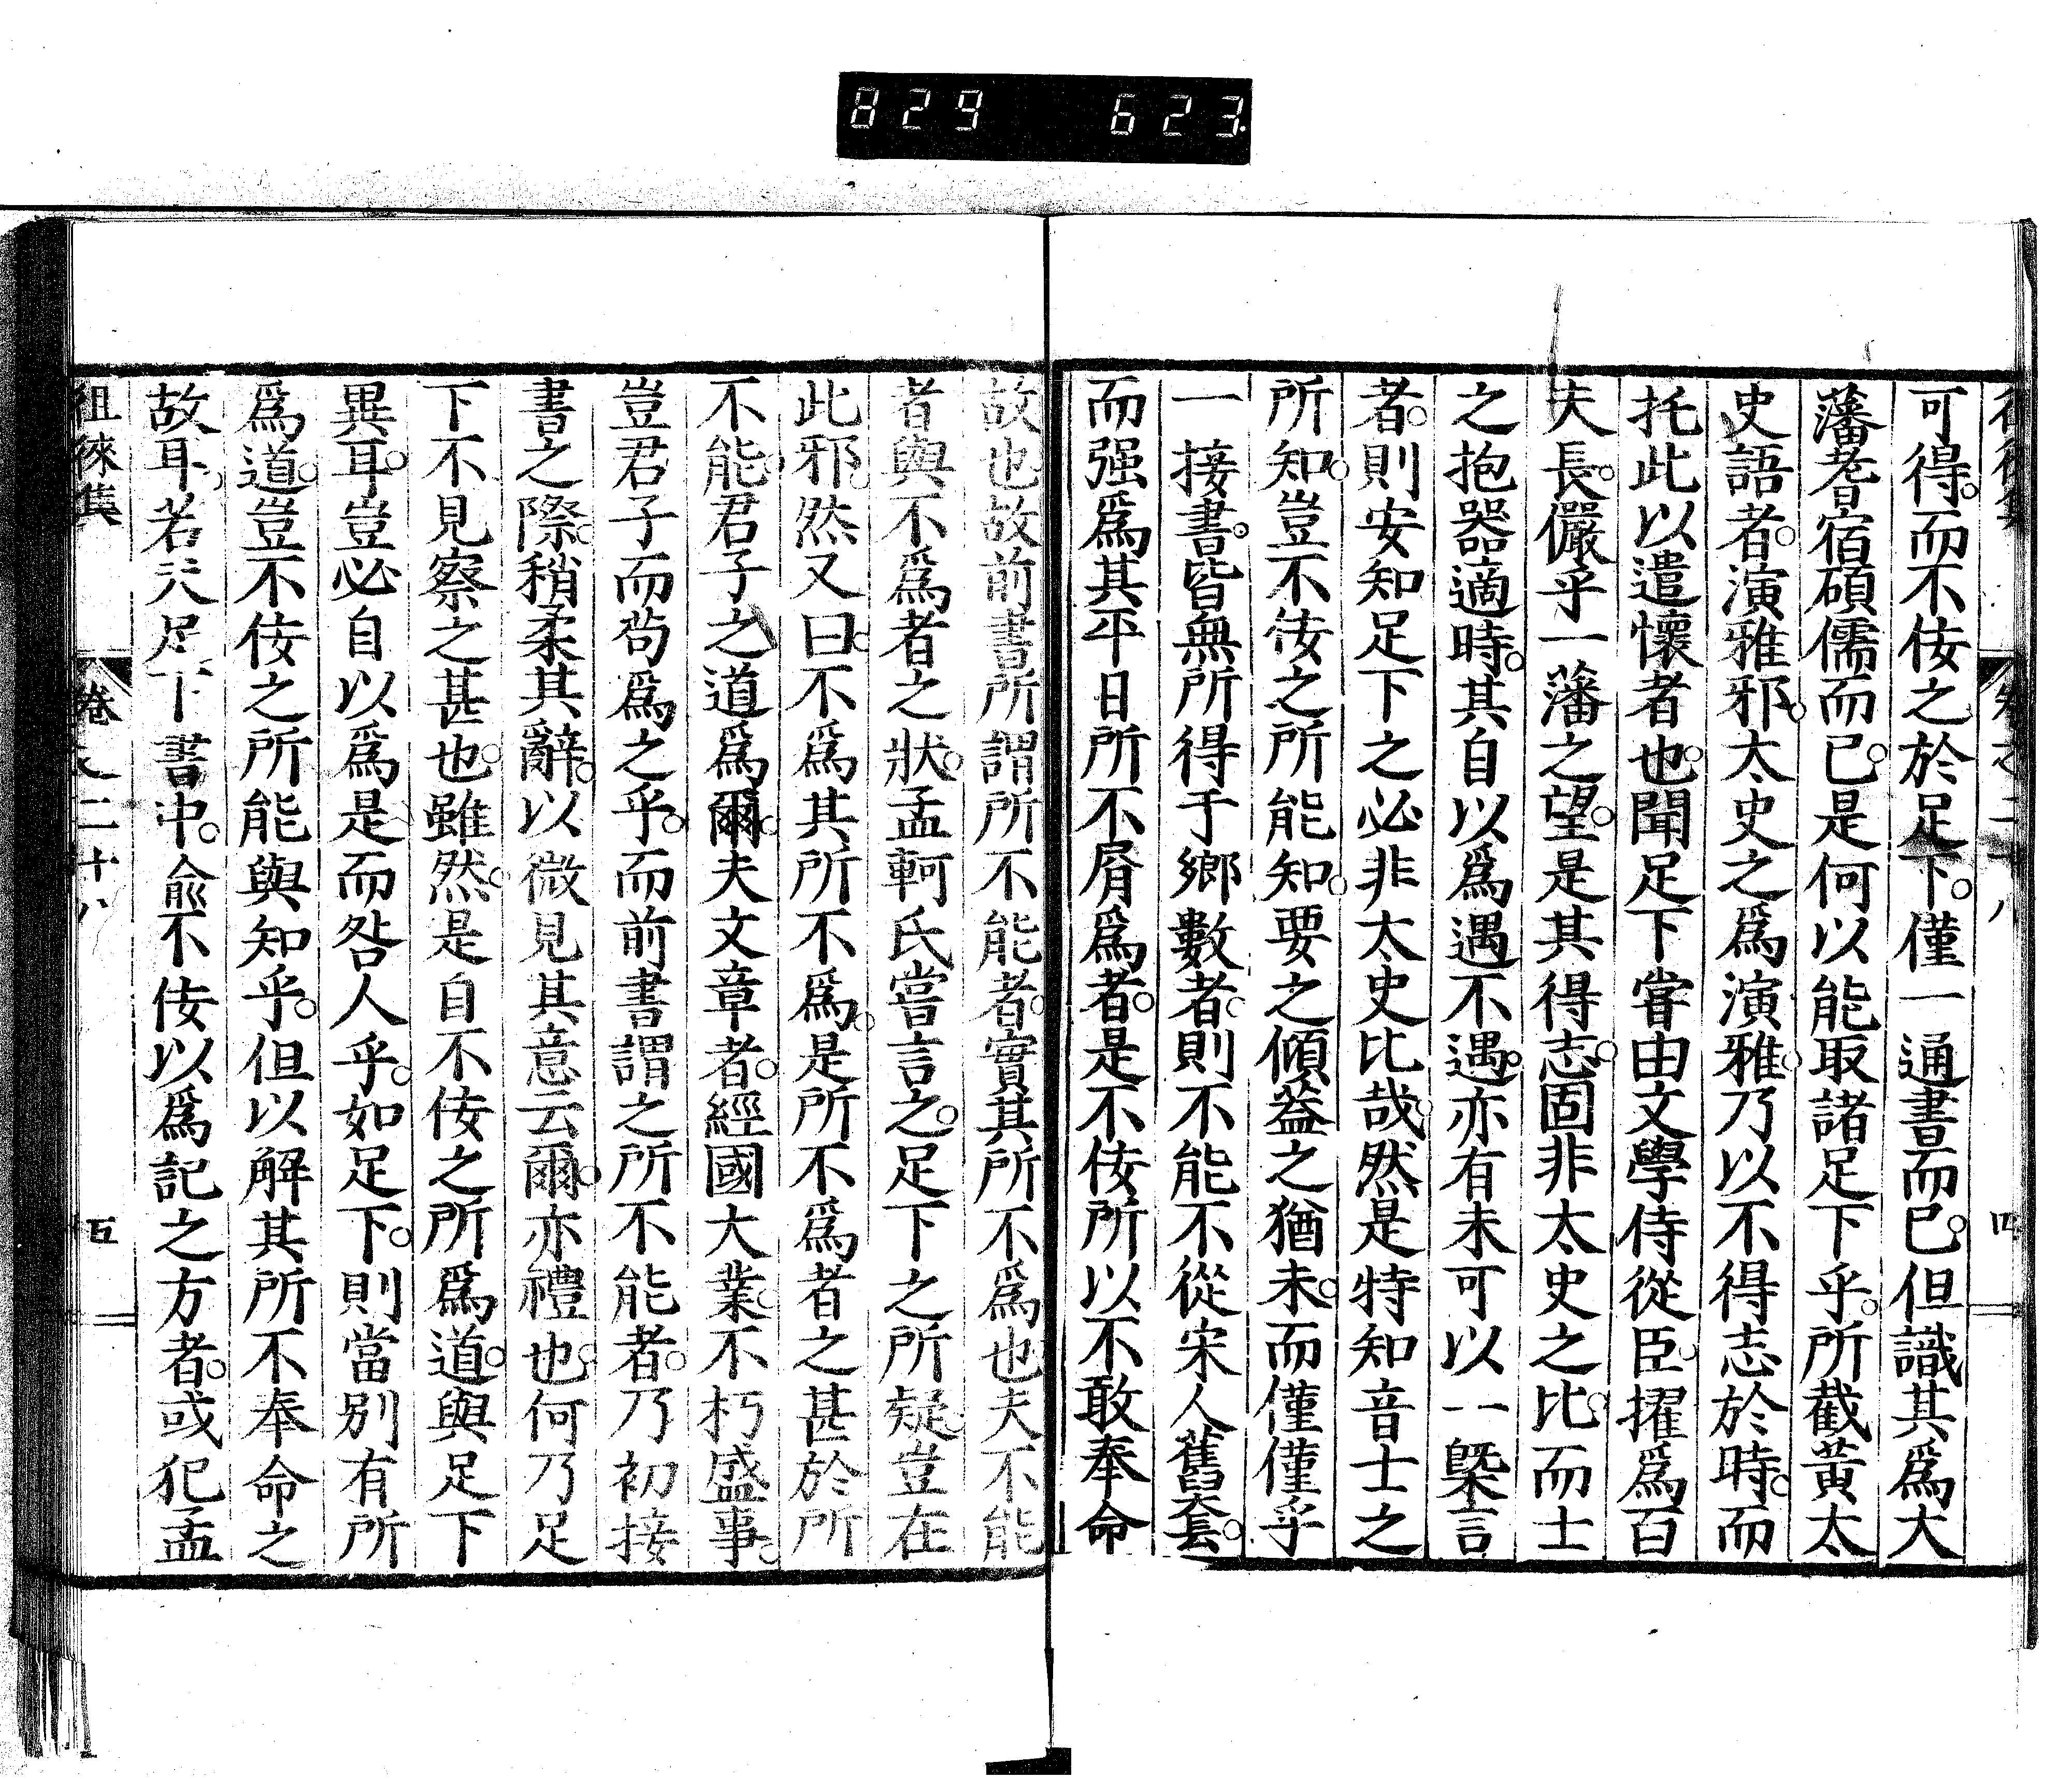 829 623
可得。而不佞之於足下。僅一通書而已。但識其爲大
藩耆宿碩儒而已。是何以能取諸足下乎。所截黃太
史語者。演雅邪。太史之爲演雅。乃以不得志於時。而
托此以遣懷者也。聞足下嘗由文學侍從臣。擢爲百
夫長。儼乎一藩之望。是其得志。固非太史之比。而士
之抱器適時。其自以爲遇不遇。亦有未可以一槩言
者。則安知足下之必非太史比哉。然是特知音士之
所知。豈不佞之所能知。要之傾蓋之猶未。而僅僅乎
一接書。皆無所得于鄉數者。則不能不從宋人舊套。
而强爲其平日所不屑爲者。是不佞所以不敢奉命
故也。故前書所謂所不能者。實其所不爲也。夫不能
者與不爲者之狀。孟軻氏嘗言之。足下之所疑。豈在
此邪。然又曰。不爲其所不爲。是所不爲者之甚於所
不能。君子之道爲爾。夫文章者。經國大業。不朽盛事。
豈君子而苟爲之乎。而前書謂之所不能者。乃初接
書之際。稍柔其辭。以微見其意云爾。亦禮也。何乃足
下不見察之甚也。雖然。是自不佞之所爲道。與足下
異耳。豈必自以爲是而咎人乎。如足下。則當別有所
爲道。豈不佞之所能與知乎。但以解其所不奉命之
故耳。若夫足下書中。兪不佞以爲記之方者。或犯孟
徂徠集 卷之二十八 五